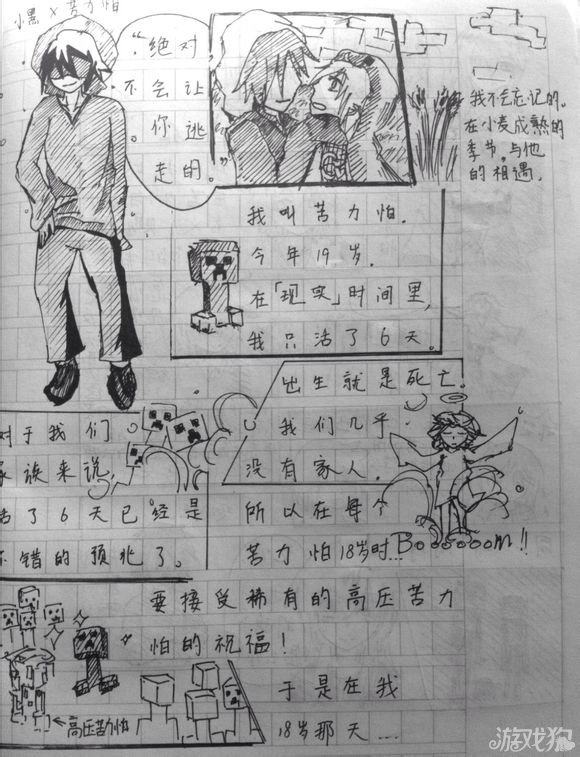 小黑 x 苦力怕
“绝对
不会让
你逃
走的。”
我不会忘记的。
在小麦成熟的
季节,与他
的相遇。
我叫苦力怕.
今年19岁.
在「现实」时间里,
我只活了6天。
出生就是死亡.
我们几乎
没有家人.
对于我们
家族来说,
活了6天已经是
不错的预兆了。
所以在每个
苦力怕18岁时...
Boooooom!!
要接受稀有的高压苦力
怕的祝福!
←高压苦力怕
于是在我
18岁那天...
游戏狗